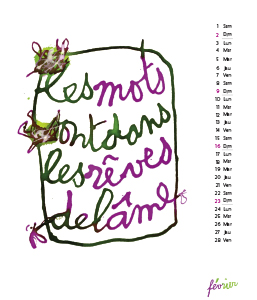 Les mots
sont dans
les rêves
de l'âme
1 Sam
2 Dim
3 Lun
4 Mar
5 Mer
6 Jeu
7 Ven
8 Sam
9 Dim
10 Lun
11 Mar
12 Mer
13 Jeu
14 Ven
15 Sam
16 Dim
17 Lun
18 Mar
19 Mer
20 Jeu
21 Ven
22 Sam
23 Dim
24 Lun
25 Mar
26 Mer
27 Jeu
28 Ven
février